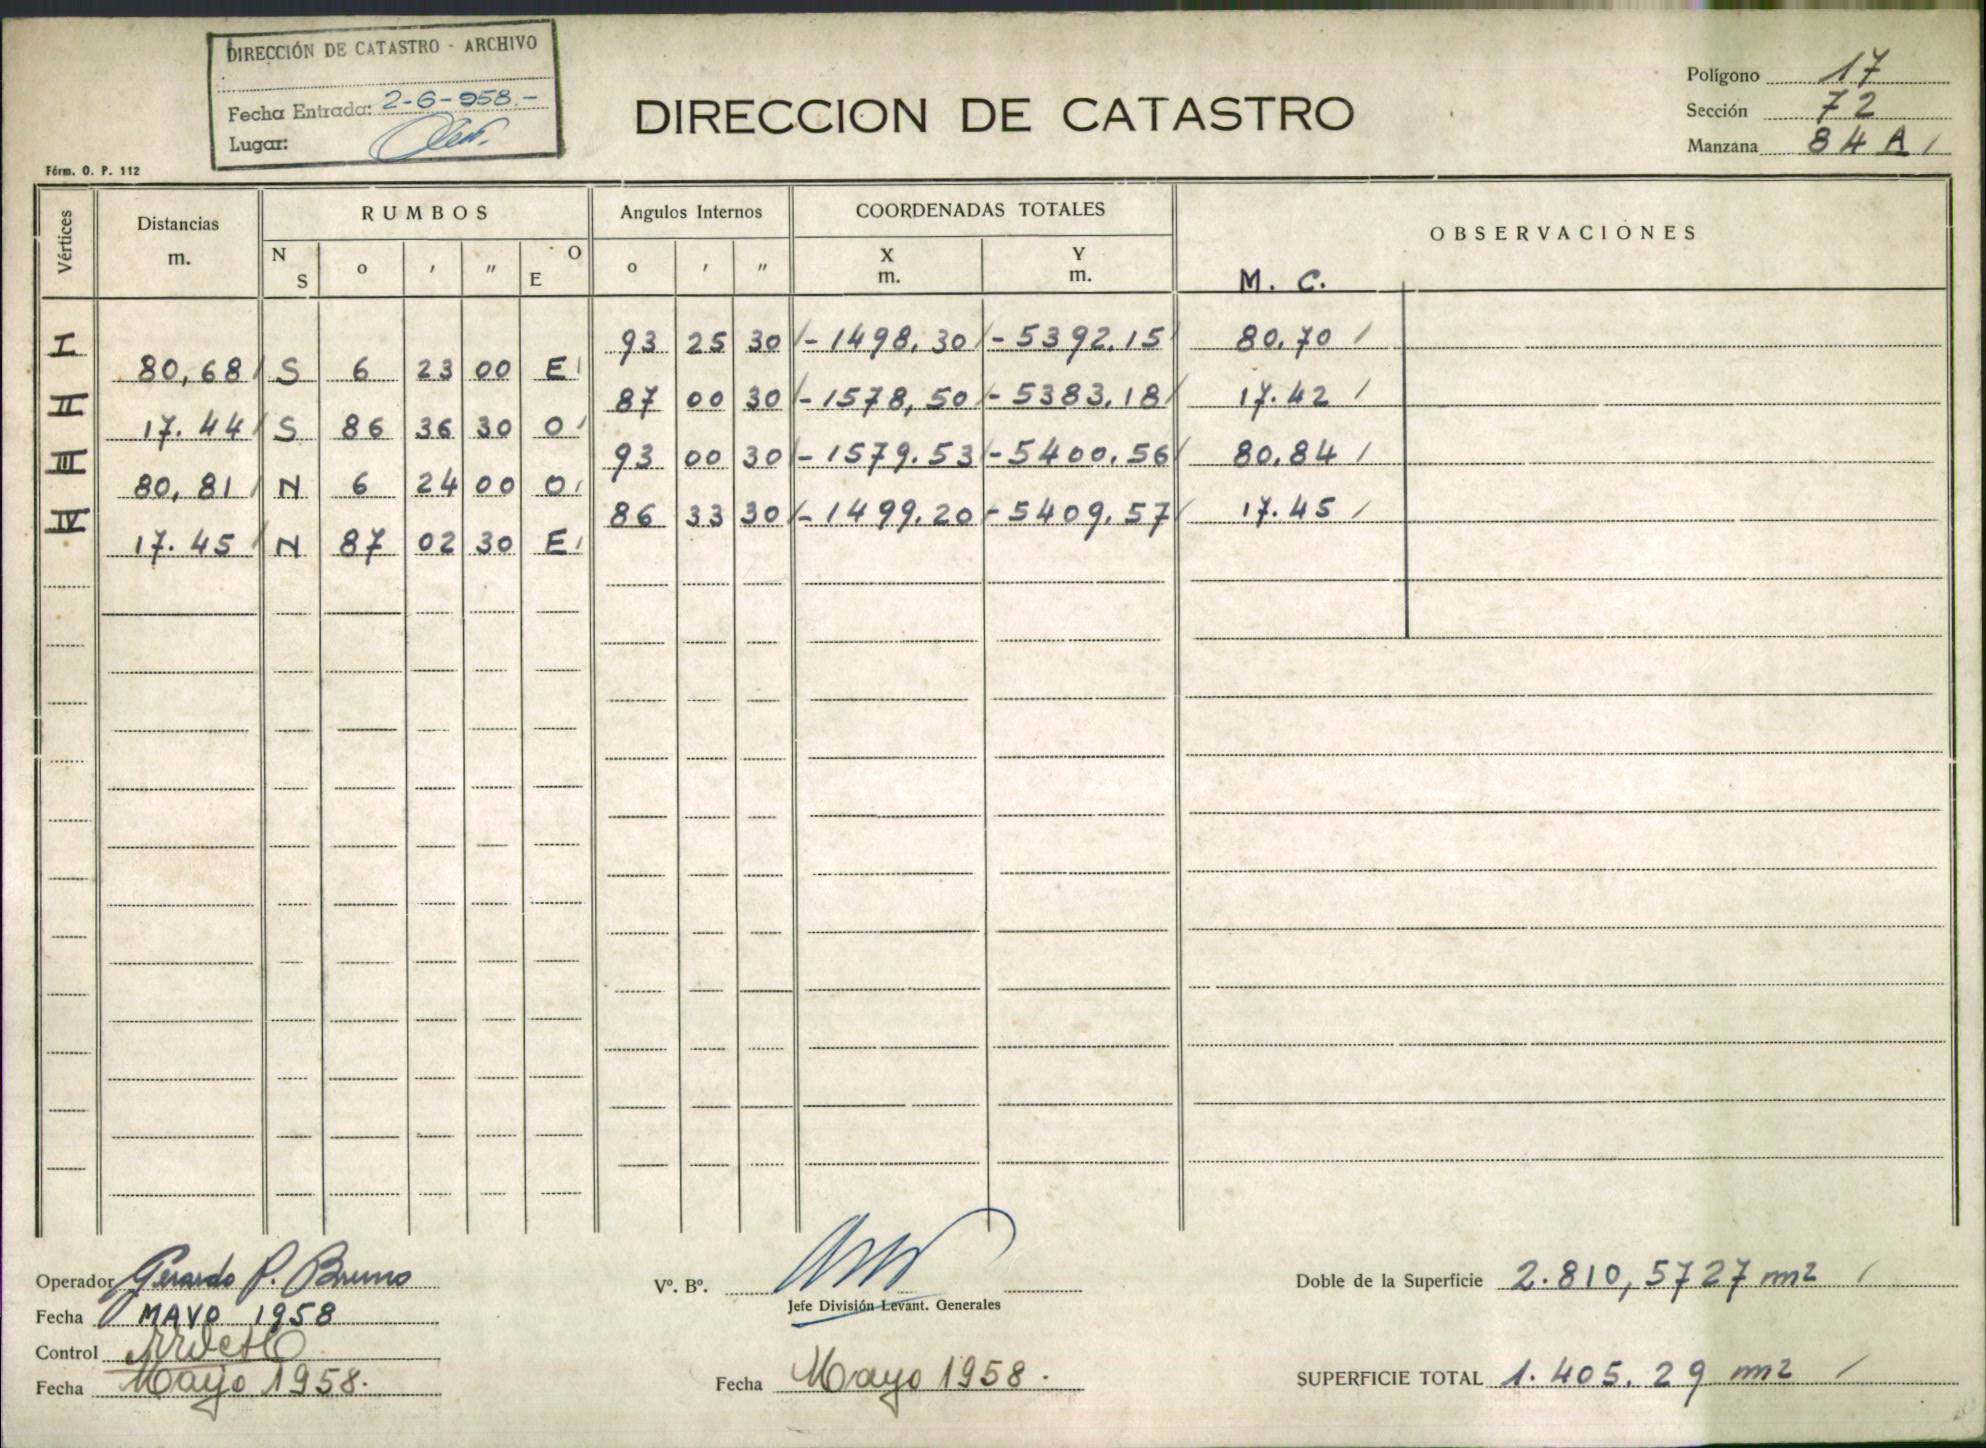 DIRECCIÓN DE CATASTRO - ARCHIVO
Fecha Entrada: 2-6-958.-
Lugar:
DIRECCION DE CATASTRO
Polígono 17
Sección 72
Manzana 84 A /
Fórm. O. P. 112
Vértices
Distancias
m.
RUMBOS
N S ° ' " E O
Angulos Internos
° ' "
COORDENADAS TOTALES
X
m.
Y
m.
OBSERVACIONES
M. C.
I 93 25 30 -1498,30 -5392,15 80.70 /
80,68 S 6 23 00 E
II 87 00 30 -1578,50 -5383,18 17.42 /
17.44 S 86 36 30 O
III 93 00 30 -1579.53 -5400,56 80.84 /
80,81 N 6 24 00 O
IV 86 33 30 -1499.20 -5409,57 17.45 /
17.45 N 87 02 30 E
Operador Gerardo P. Bruno
Fecha MAYO 1958
Control
Fecha Mayo 1958.
Vº. Bº.
Jefe División Levant. Generales
Fecha Mayo 1958.
Doble de la Superficie 2.810,5727 m2 /
SUPERFICIE TOTAL 1.405.29 m2 /